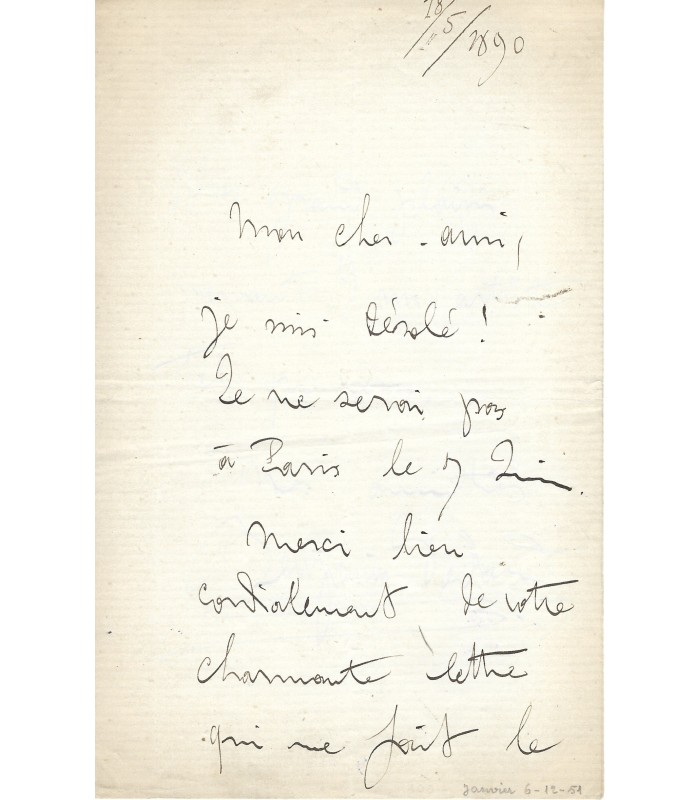 18/5/1890
Mon cher ami,
je suis désolé !
Je ne serai pas
à Paris le 7 Juin.
Merci bien
cordialement de votre
charmante lettre
qui me fait le
Janvier 6-12-51